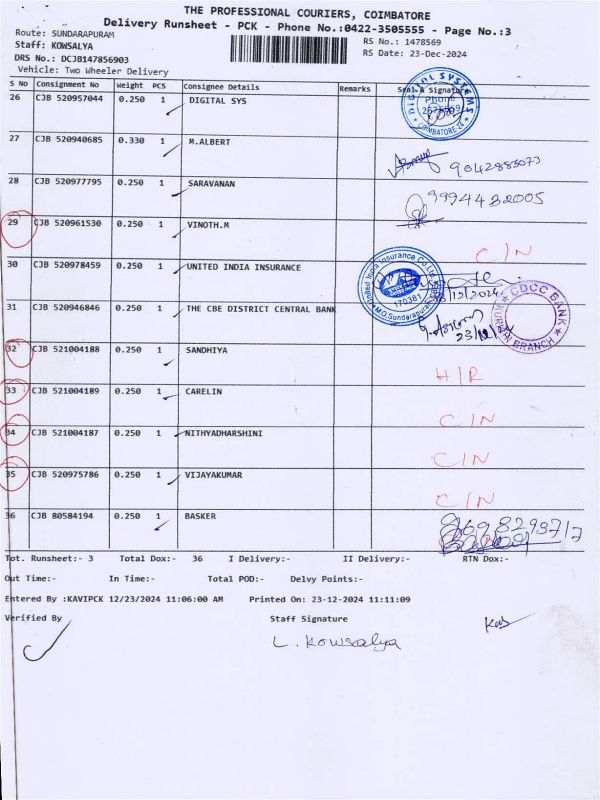 THE PROFESSIONAL COURIERS, COIMBATORE
Delivery Runsheet - PCK - Phone No.:0422-3505555 - Page No.:3
Route: SUNDARAPURAM
Staff: KOWSALYA
RS No.: 1478569
DRS No.: DCJB147856903
RS Date: 23-Dec-2024
Vehicle: Two Wheeler Delivery
S No Consignment No Weight PCS Consignee Details Remarks Seal & Signature
26 CJB 520957044 0.250 1 DIGITAL SYS
DIGITAL SYSTEMS Phone COIMBATORE-24
27 CJB 520940685 0.330 1 M.ALBERT
9042883073
28 CJB 520977795 0.250 1 SARAVANAN
9994432005
29 CJB 520961530 0.250 1 VINOTH.M
C/N
30 CJB 520978459 0.250 1 UNITED INDIA INSURANCE
United India Insurance Co. Ltd. 170381 M.O. Sundarapuram
23/12/2024
31 CJB 520946846 0.250 1 THE CBE DISTRICT CENTRAL BANK
CDCC BANK BRANCH
23/12/24
32 CJB 521004188 0.250 1 SANDHIYA
H/R
33 CJB 521004189 0.250 1 CARELIN
C/N
34 CJB 521004187 0.250 1 NITHYADHARSHINI
C/N
35 CJB 520975786 0.250 1 VIJAYAKUMAR
C/N
36 CJB 80584194 0.250 1 BASKER
Tot. Runsheet:- 3 Total Dox:- 36 I Delivery:- II Delivery:- RTN Dox:-
Out Time:- In Time:- Total POD:- Delvy Points:-
Entered By :KAVIPCK 12/23/2024 11:06:00 AM Printed On: 23-12-2024 11:11:09
Verified By Staff Signature
L. Kowsalya